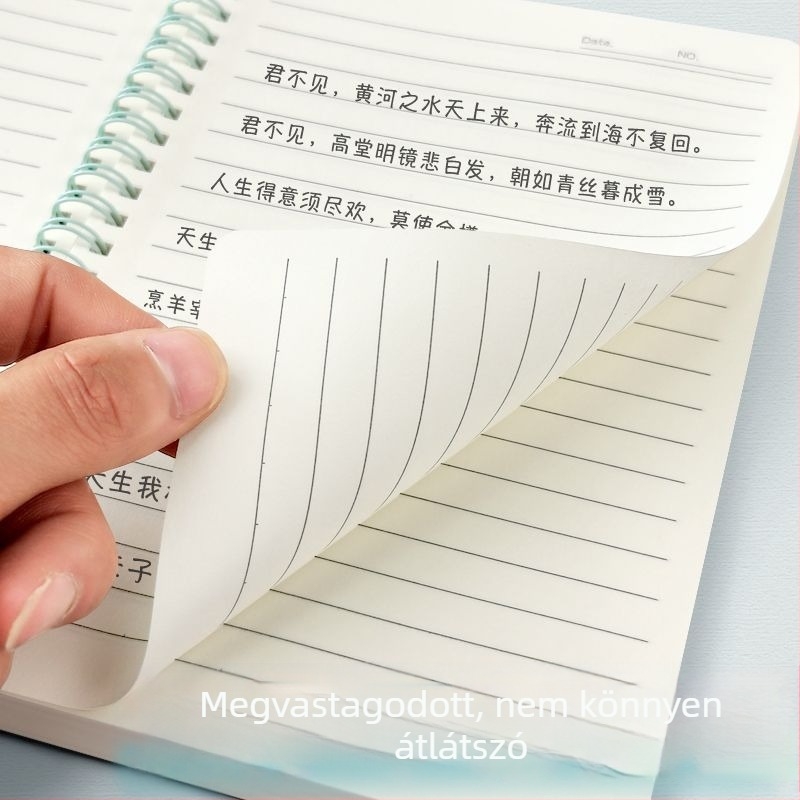 Date.
NO.
君不见，黄河之水天上来，奔流到海不复回。
君不见，高堂明镜悲白发，朝如青丝暮成雪。
人生得意须尽欢，莫使金樽
天生
烹羊宰
天生我
子
Megvastagodott, nem könnyen
átlátszó